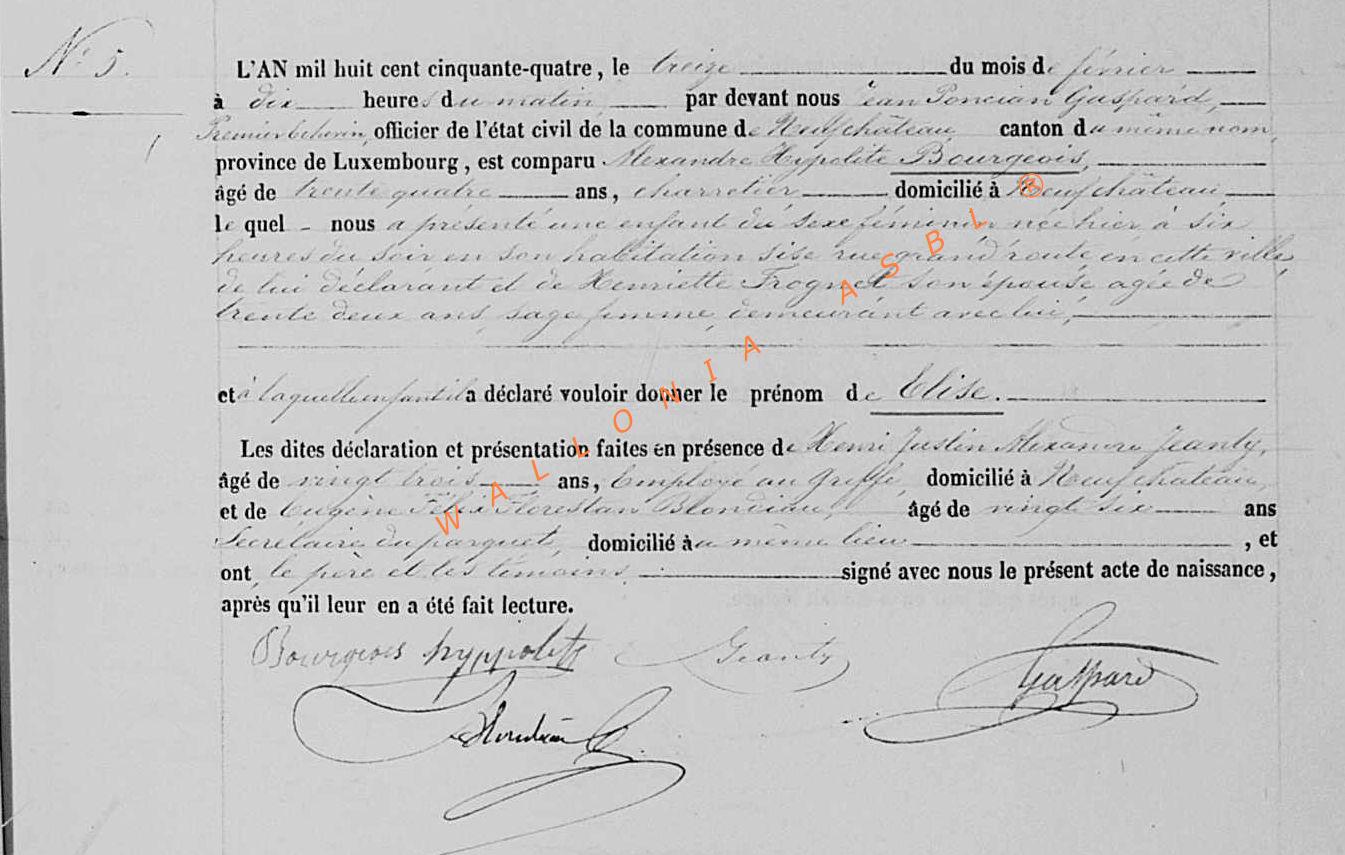 N° 5.
L'AN mil huit cent cinquante-quatre, le treize du mois de février
à dix heures du matin par devant nous Jean Poncian Gaspard,
Premier Echevin, officier de l'état civil de la commune de Neufchâteau canton du même nom,
province de Luxembourg, est comparu Alexandre Hypolite Bourgeois,
âgé de trente quatre ans, charretier domicilié à Neufchâteau,
le quel nous a présenté une enfant du sexe féminin née hier à six
heures du soir en son habitation sise rue grand'route en cette ville,
de lui déclarant et de Henriette Frognet son épouse agée de
trente deux ans, sage femme, demeurant avec lui,
et à laquelle enfant il a déclaré vouloir donner le prénom de Elise.
Les dites déclaration et présentation faites en présence de Henri Justin Alexandre Jeanty,
âgé de vingt trois ans, Employé au Greffe, domicilié à Neufchateau,
et de Eugène Félix Florestan Blondiau, âgé de vingt six ans
Secrétaire du parquet, domicilié au même lieu, et
ont, le père et les témoins, signé avec nous le présent acte de naissance,
après qu'il leur en a été fait lecture.
Bourgeois hyppolite Jeanty Gaspard
Blondiau
WALLONIA ASBL ®